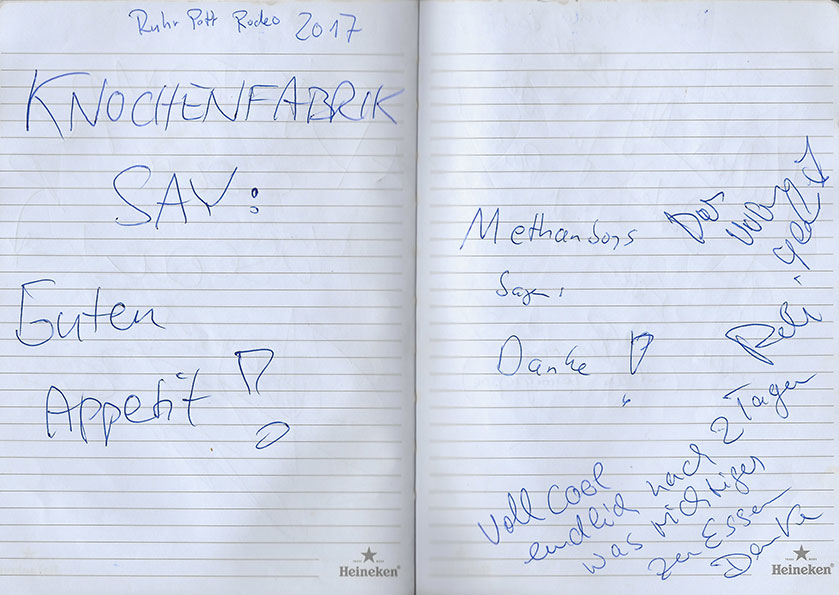 Ruhr Pott Rodeo 2017
KNOCHENFABRIK
SAY:
Guten
Appetit !
Heineken
Methanboys
Sagen:
Danke !
Das
war
Voll Cool
endlich nach 2 Tagen
was richtiges
zu Essen
Danke
Heineken